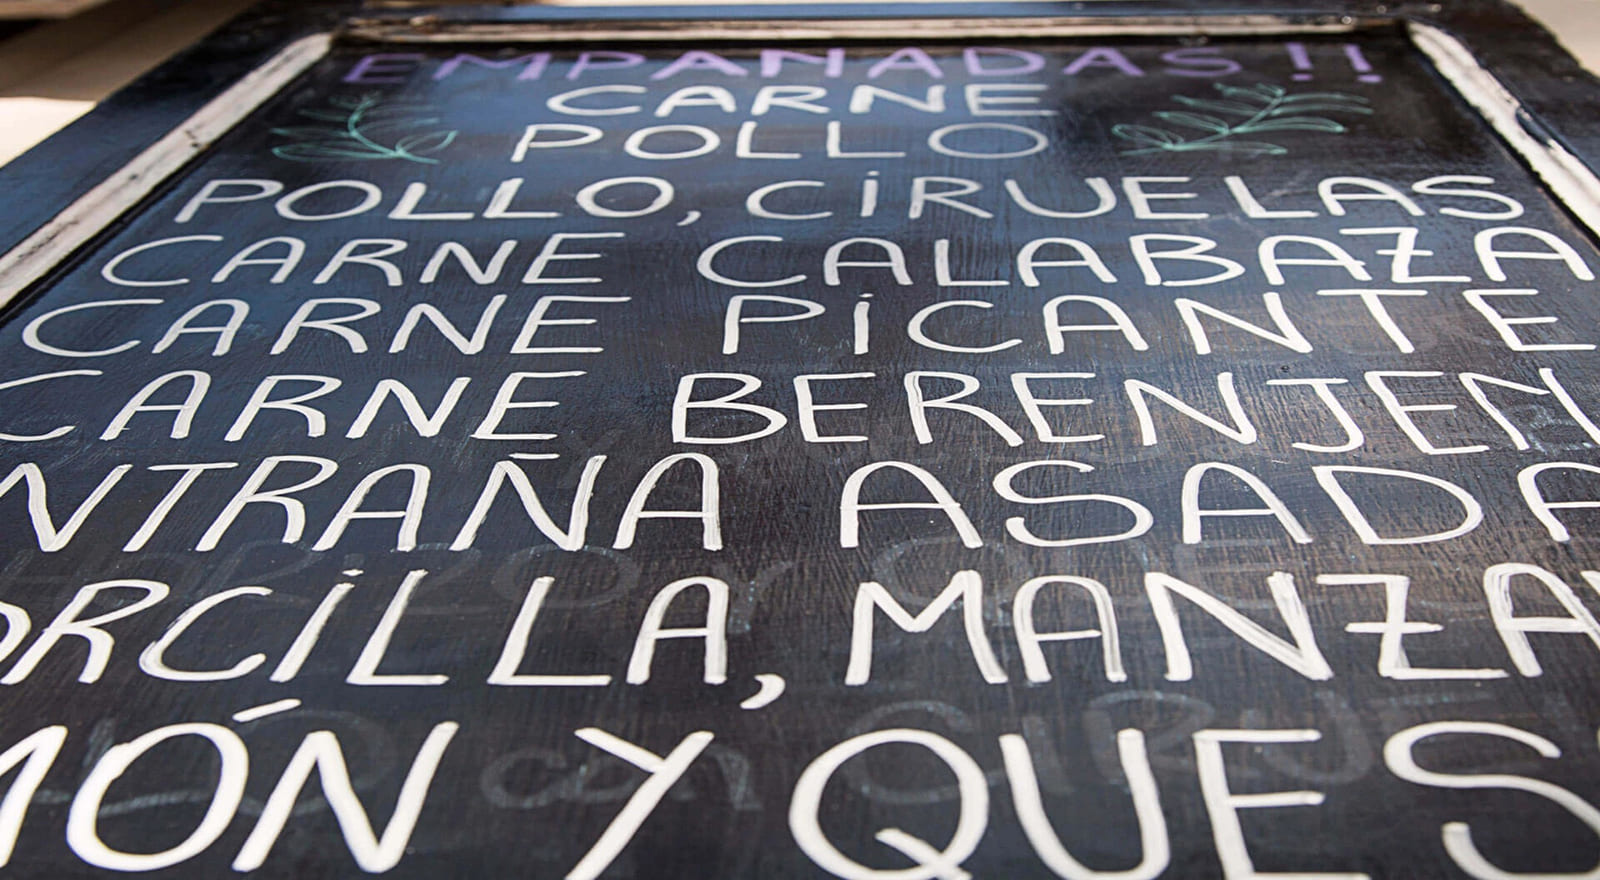 EMPANADAS!!
CARNE
POLLO
POLLO, CIRUELAS
CARNE CALABAZA
CARNE PICANTE
CARNE BERENJEN
NTRAÑA ASADA
ORCILLA, MANZA
MÓN Y QUES